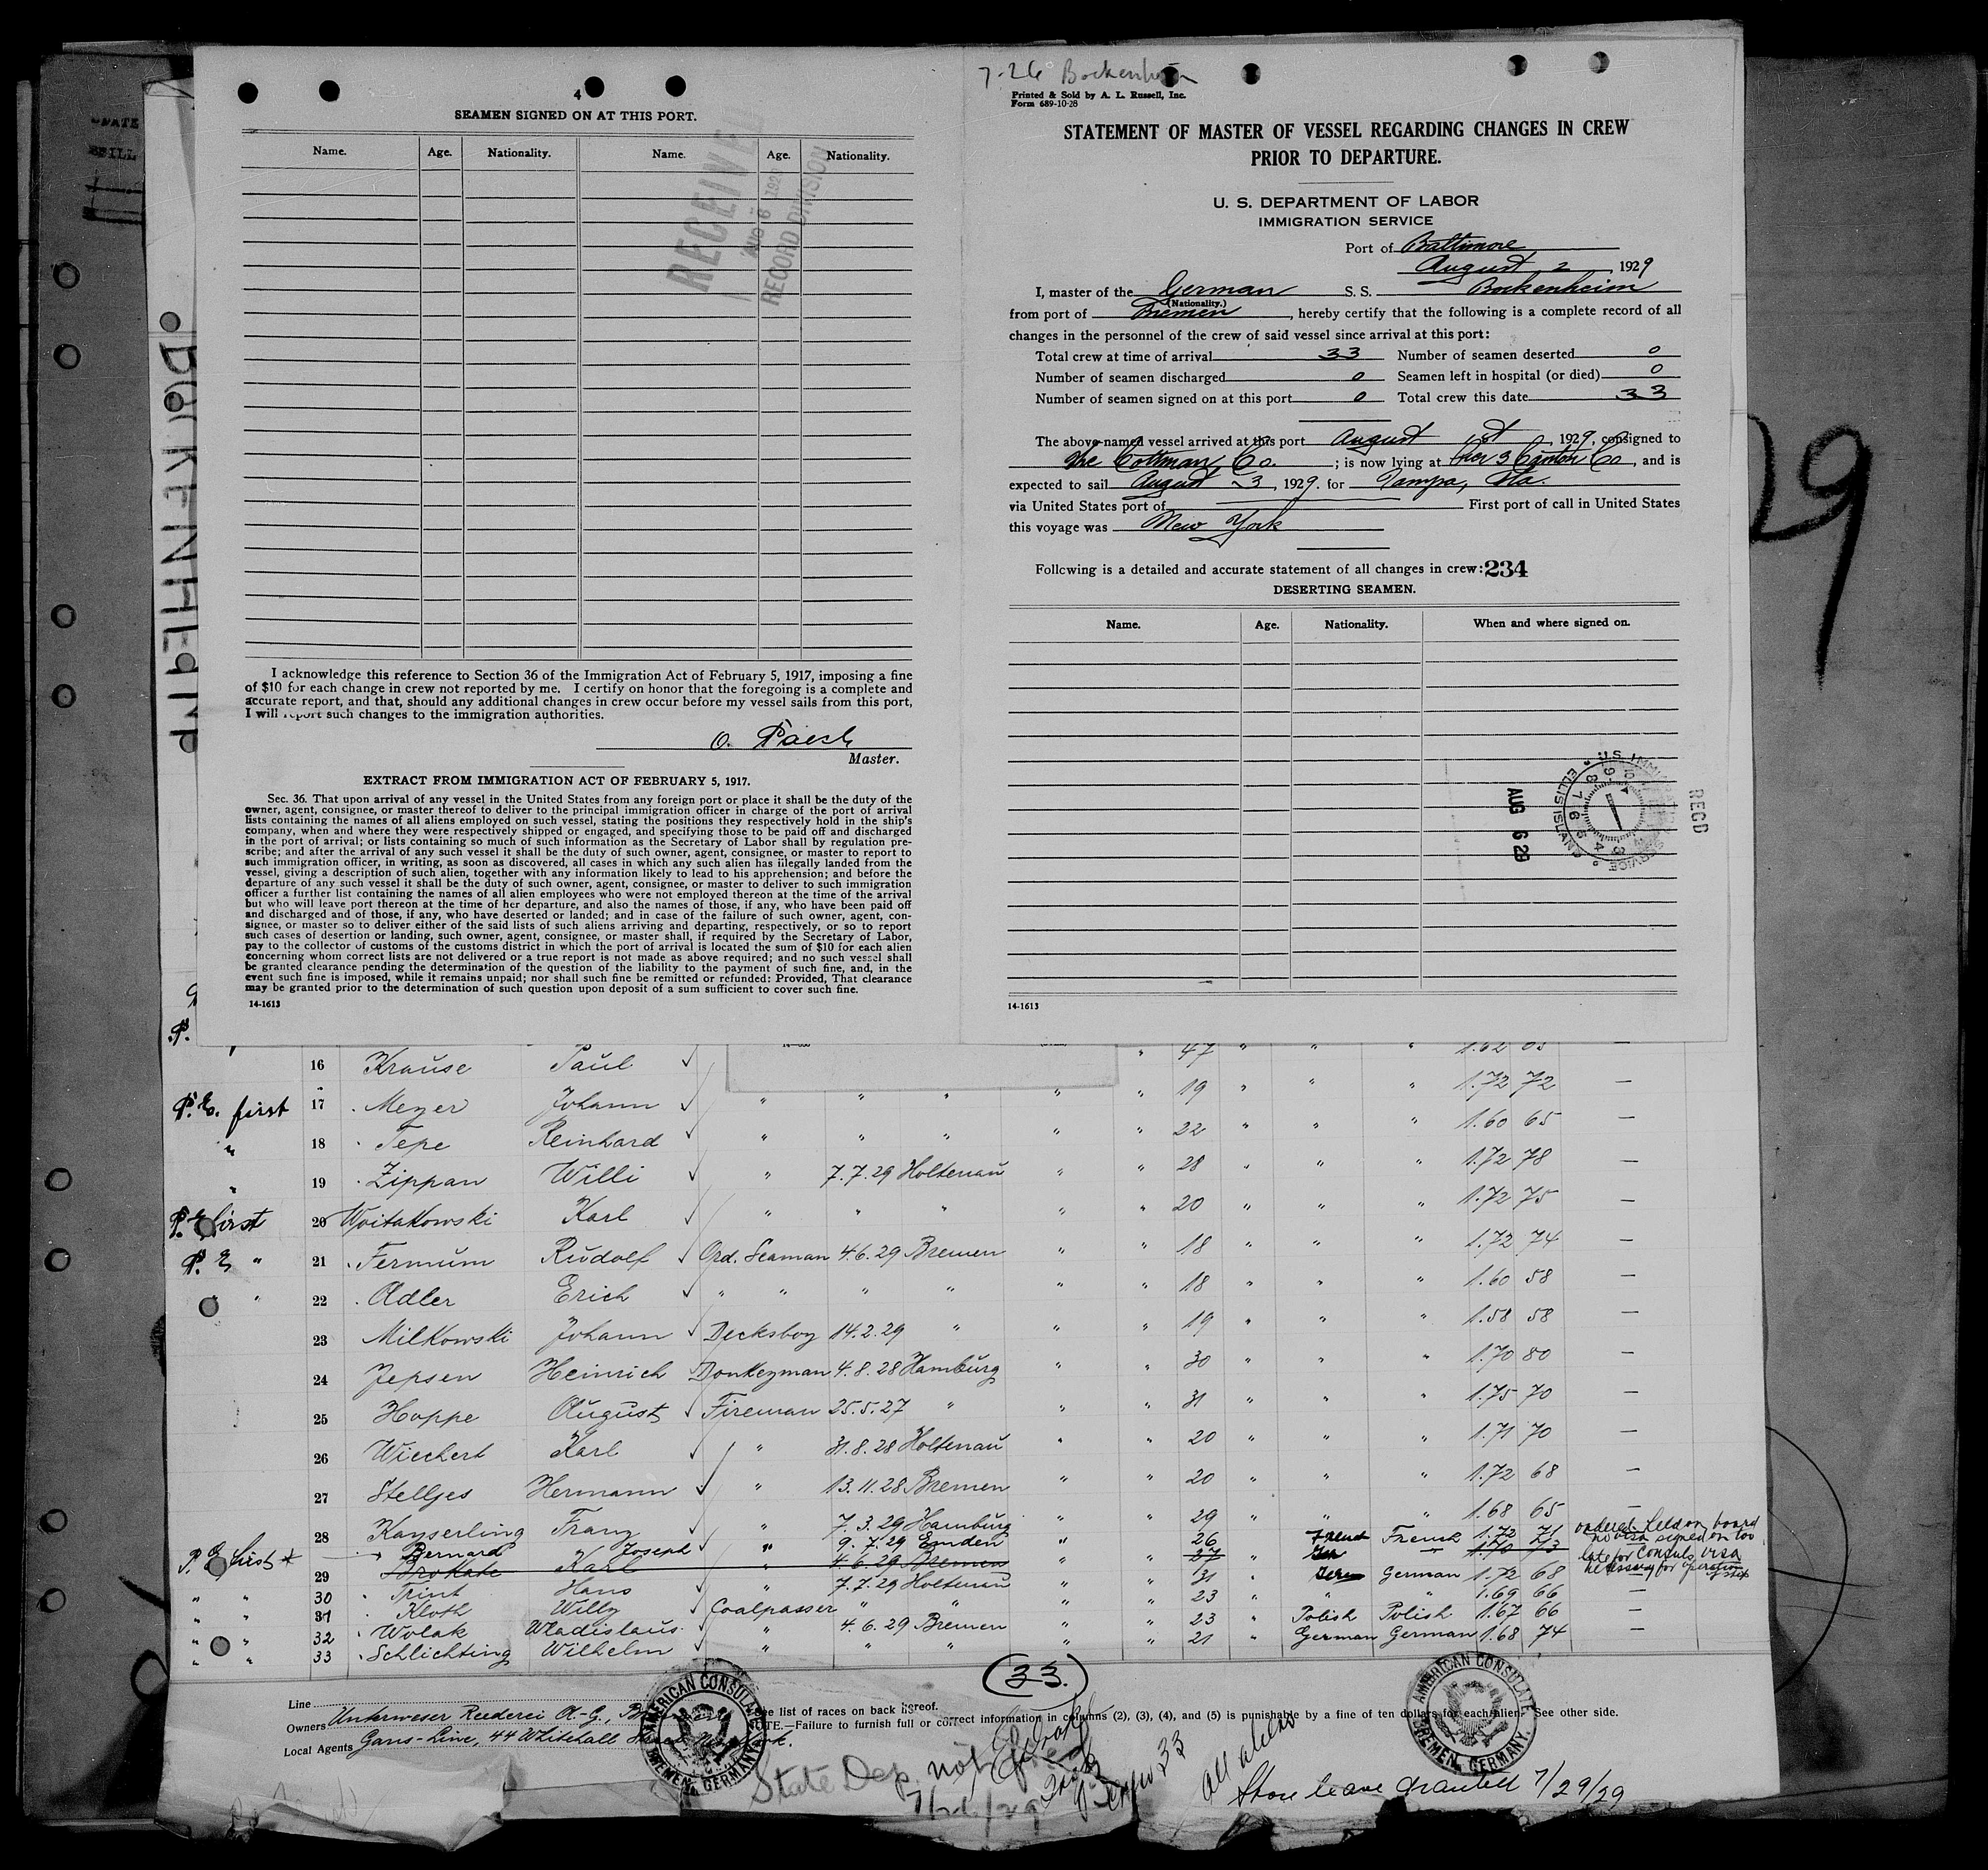 4
SEAMEN SIGNED ON AT THIS PORT.
Name. Age. Nationality. Name. Age. Nationality.
RECEIVED
AUG 6 192
RECORD DIVISION
I acknowledge this reference to Section 36 of the Immigration Act of February 5, 1917, imposing a fine
of $10 for each change in crew not reported by me. I certify on honor that the foregoing is a complete and
accurate report, and that, should any additional changes in crew occur before my vessel sails from this port,
I will report such changes to the immigration authorities.
O. Paech
Master.
EXTRACT FROM IMMIGRATION ACT OF FEBRUARY 5, 1917.
Sec. 36. That upon arrival of any vessel in the United States from any foreign port or place it shall be the duty of the
owner, agent, consignee, or master thereof to deliver to the principal immigration officer in charge of the port of arrival
lists containing the names of all aliens employed on such vessel, stating the positions they respectively hold in the ship's
company, when and where they were respectively shipped or engaged, and specifying those to be paid off and discharged
in the port of arrival; or lists containing so much of such information as the Secretary of Labor shall by regulation pre-
scribe; and after the arrival of any such vessel it shall be the duty of such owner, agent, consignee, or master to report to
such immigration officer, in writing, as soon as discovered, all cases in which any such alien has illegally landed from the
vessel, giving a description of such alien, together with any information likely to lead to his apprehension; and before the
departure of any such vessel it shall be the duty of such owner, agent, consignee, or master to deliver to such immigration
officer a further list containing the names of all alien employees who were not employed thereon at the time of the arrival
but who will leave port thereon at the time of her departure, and also the names of those, if any, who have been paid off
and discharged and of those, if any, who have deserted or landed; and in case of the failure of such owner, agent, con-
signee, or master so to deliver either of the said lists of such aliens arriving and departing, respectively, or so to report
such cases of desertion or landing, such owner, agent, consignee, or master shall, if required by the Secretary of Labor,
pay to the collector of customs of the customs district in which the port of arrival is located the sum of $10 for each alien
concerning whom correct lists are not delivered or a true report is not made as above required; and no such vessel shall
be granted clearance pending the determination of the question of the liability to the payment of such fine, and, in the
event such fine is imposed, while it remains unpaid; nor shall such fine be remitted or refunded: Provided, That clearance
may be granted prior to the determination of such question upon deposit of a sum sufficient to cover such fine.
14-1613
7-26 Bockenheim
Printed & Sold by A. L. Russell, Inc.
Form 689-10-28
STATEMENT OF MASTER OF VESSEL REGARDING CHANGES IN CREW
PRIOR TO DEPARTURE.
U. S. DEPARTMENT OF LABOR
IMMIGRATION SERVICE
Port of Baltimore
August 2, 1929
I, master of the German S. S. Bockenheim
(Nationality.)
from port of Bremen, hereby certify that the following is a complete record of all
changes in the personnel of the crew of said vessel since arrival at this port:
Total crew at time of arrival 33 Number of seamen deserted 0
Number of seamen discharged 0 Seamen left in hospital (or died) 0
Number of seamen signed on at this port 0 Total crew this date 33
The above-named vessel arrived at this port August 1st, 1929, consigned to
The Cottman Co. ; is now lying at Pier 3 Canton Co, and is
expected to sail August 3, 1929. for Tampa, Fla.
via United States port of First port of call in United States
this voyage was New York
Following is a detailed and accurate statement of all changes in crew: 234
DESERTING SEAMEN.
Name. Age. Nationality. When and where signed on.
RECD
AUG 6 29
U.S. IMMIGRATION SERVICE ELLIS ISLAND
14-1613
BOCKENHEIM
29
16 Krause Paul 47 " " " 1.62 65 —
P.E. first 17 Meyer Johann " " " " " 19 " " " 1.72 72 —
" 18 Tepe Reinhard " " " " " 22 " " " 1.60 65 —
" 19 Zippan Willi " 7.7.29 Holtenau " " 28 " " " 1.72 78 —
P.E. first 20 Woitakowski Karl " " " " " 20 " " " 1.72 75 —
P.E. " 21 Fermum Rudolf Ord. Seaman 4.6.29 Bremen " " 18 " " " 1.72 74 —
" " 22 Adler Erich " " " " " " 18 " " " 1.60 58 —
23 Milkowski Johann Decksboy 14.2.29 " " " 19 " " " 1.58 58 —
24 Jepsen Heinrich Donkeyman 4.8.28 Hamburg " " 30 " " " 1.70 80 —
25 Hoppe August Fireman 25.5.27 " " " 31 " " " 1.75 70 —
26 Wiechert Karl " 31.8.28 Holtenau " " 20 " " " 1.71 70 —
27 Stelljes Hermann " 13.11.28 Bremen " " 20 " " " 1.72 68 —
28 Kayserling Franz " 7.3.29 Hamburg " " 29 " " " 1.68 65 —
Bernard Joseph " 9.7.29 Emden " 26 French French 1.72 71 ordered held on board no visa signed on too
P.E. first * 29 Brokate Karl 4.6.29 Bremen 27 Ger 1.70 73 late for Consuls visa
" " 30 Trint Hans " 7.7.29 Holtenau " " 31 " German 1.72 68 —
" " 31 Kloth Willy Coalpasser " " " " 23 " " " 1.69 66 —
" " 32 Wolak Wladislaus " 4.6.29 Bremen " " 23 " Polish Polish 1.67 66 —
" " 33 Schlichting Wilhelm " " " " " 21 " German German 1.68 74 —
(33.)
Line
Owners Unterweser Reederei A-G., B
Local Agents Gans-Line, 44 Whitehall
See list of races on back hereof.
NOTE.—Failure to furnish full or correct information in columns (2), (3), (4), and (5) is punishable by a fine of ten dollars for each alien. See other side.
AMERICAN CONSULATE, BREMEN, GERMANY.
AMERICAN CONSULATE, BREMEN, GERMANY.
State Dep. not
7/26/29
33
All aliens
Shore leave granted 7/29/29